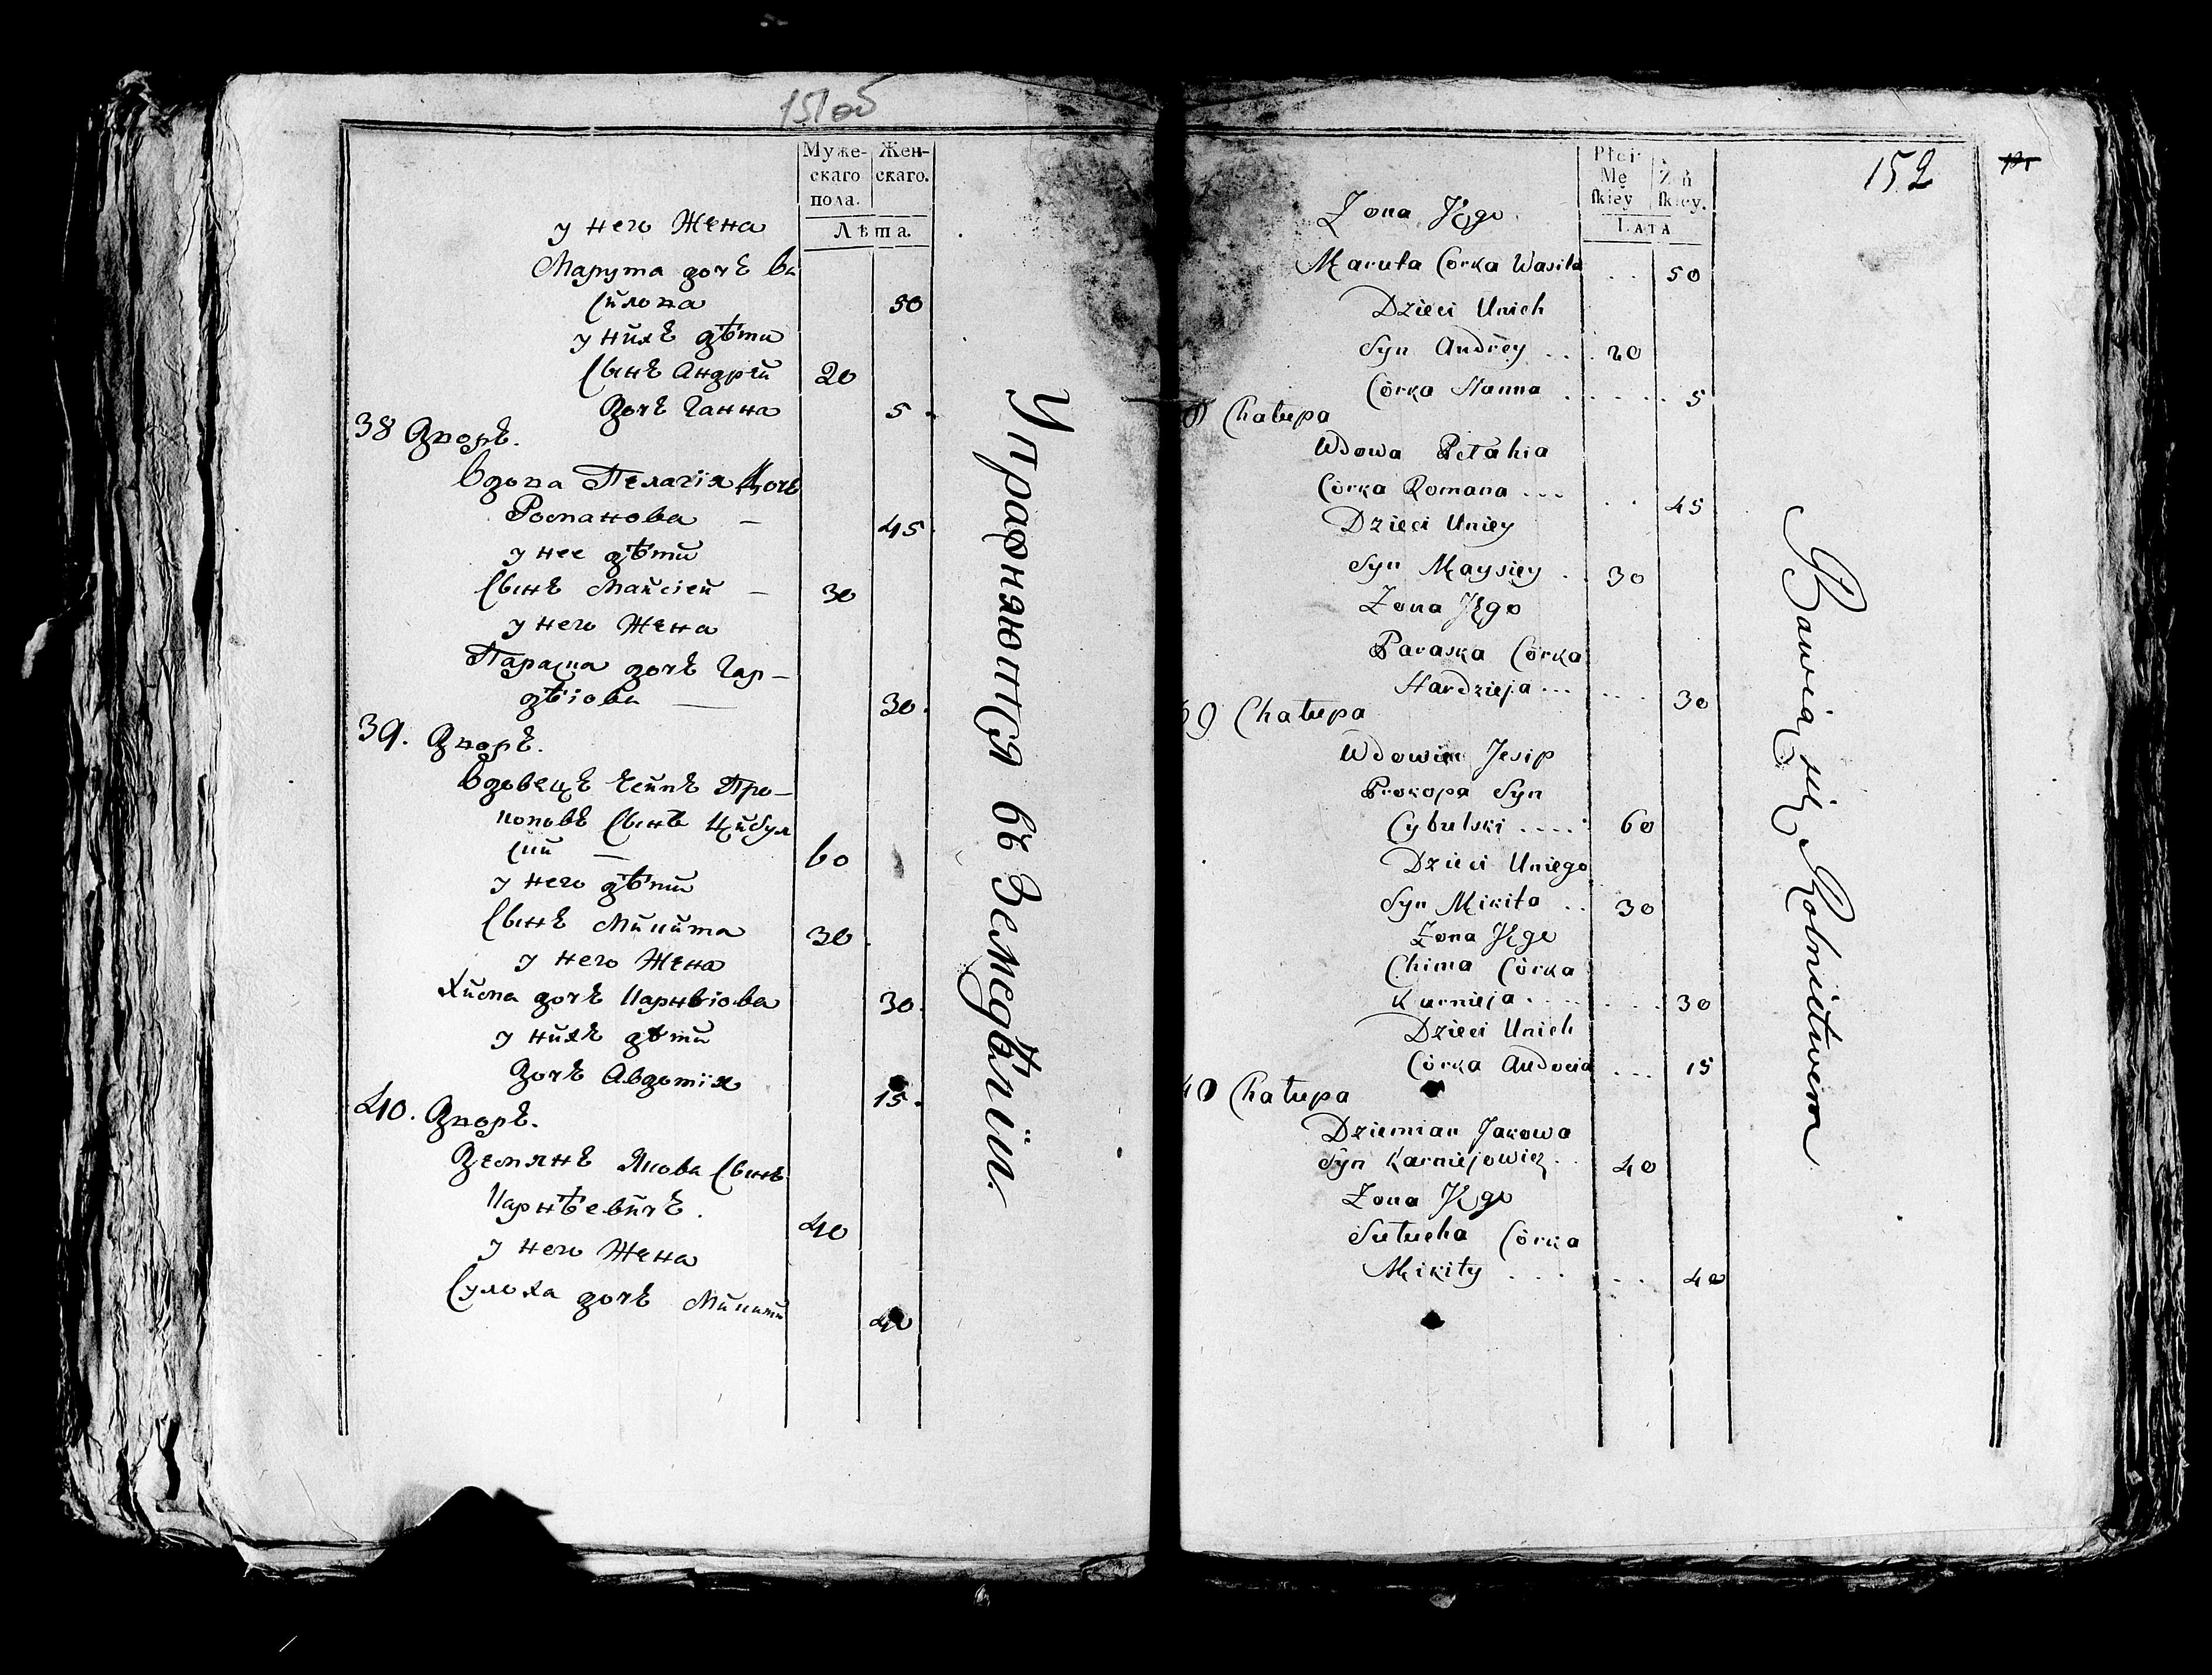 151 об
Муже-
скаго
пола.
Жен-
скаго.
Лѣта.
у него Жена
Марута дочъ Ва
силова 50
у нихъ дѣти
Сынъ Андрей 20
Дочъ Ганна 5
38 Дворъ.
Вдова Пелагія Дочъ
Романова — 45
у нее дѣти
Сынъ Майсiей — 30
у него Жена
Параска дочъ Гар-
дѣiова — 30
39. Дворъ.
Вдовецъ Есипъ Про-
коповъ Сынъ Цибул
скй — 60
у него дѣти
Сынъ Микита 30
у него Жена
Хима дочъ Карнѣiова 30
у нихъ дѣти
Дочъ Авдотiя 15
40. Дворъ.
Демянъ Якова Сынъ
Карнѣевичъ. 40
у него Жена
Сулоха дочъ Микити 40
Упражняются въ Земледѣлiи.
152
Płci
Mę
skiey
Żeń
skiey.
LATA
Żona Jego
Maruta Córka Wasila . . 50
Dzieci Unich
Syn Andrey . . . 20
Córka Hanna . . . . . 5
8 Chałupa
Wdowa Pełahia
Córka Romana . . . . . 45
Dzieci Uniey
Syn Maysiey . . 30
Żona Jego
Paraska Córka
Hardzieja . . . . . . 30
39 Chałupa
Wdowiec Jesip
Prokopa Syn
Cybulski . . . . 60
Dzieci Uniego
Syn Mikita . . 30
Żona Jego
Chima Córka
Karnieja . . . . . . . 30
Dzieci Unich
Córka Audocia . . . 15
40 Chałupa
Dziemian Jakowa
Syn Karniejowicz . . 40
Żona Jego
Sulucha Córka
Mikity . . . . . . 40
Bawią się Rolnictwem